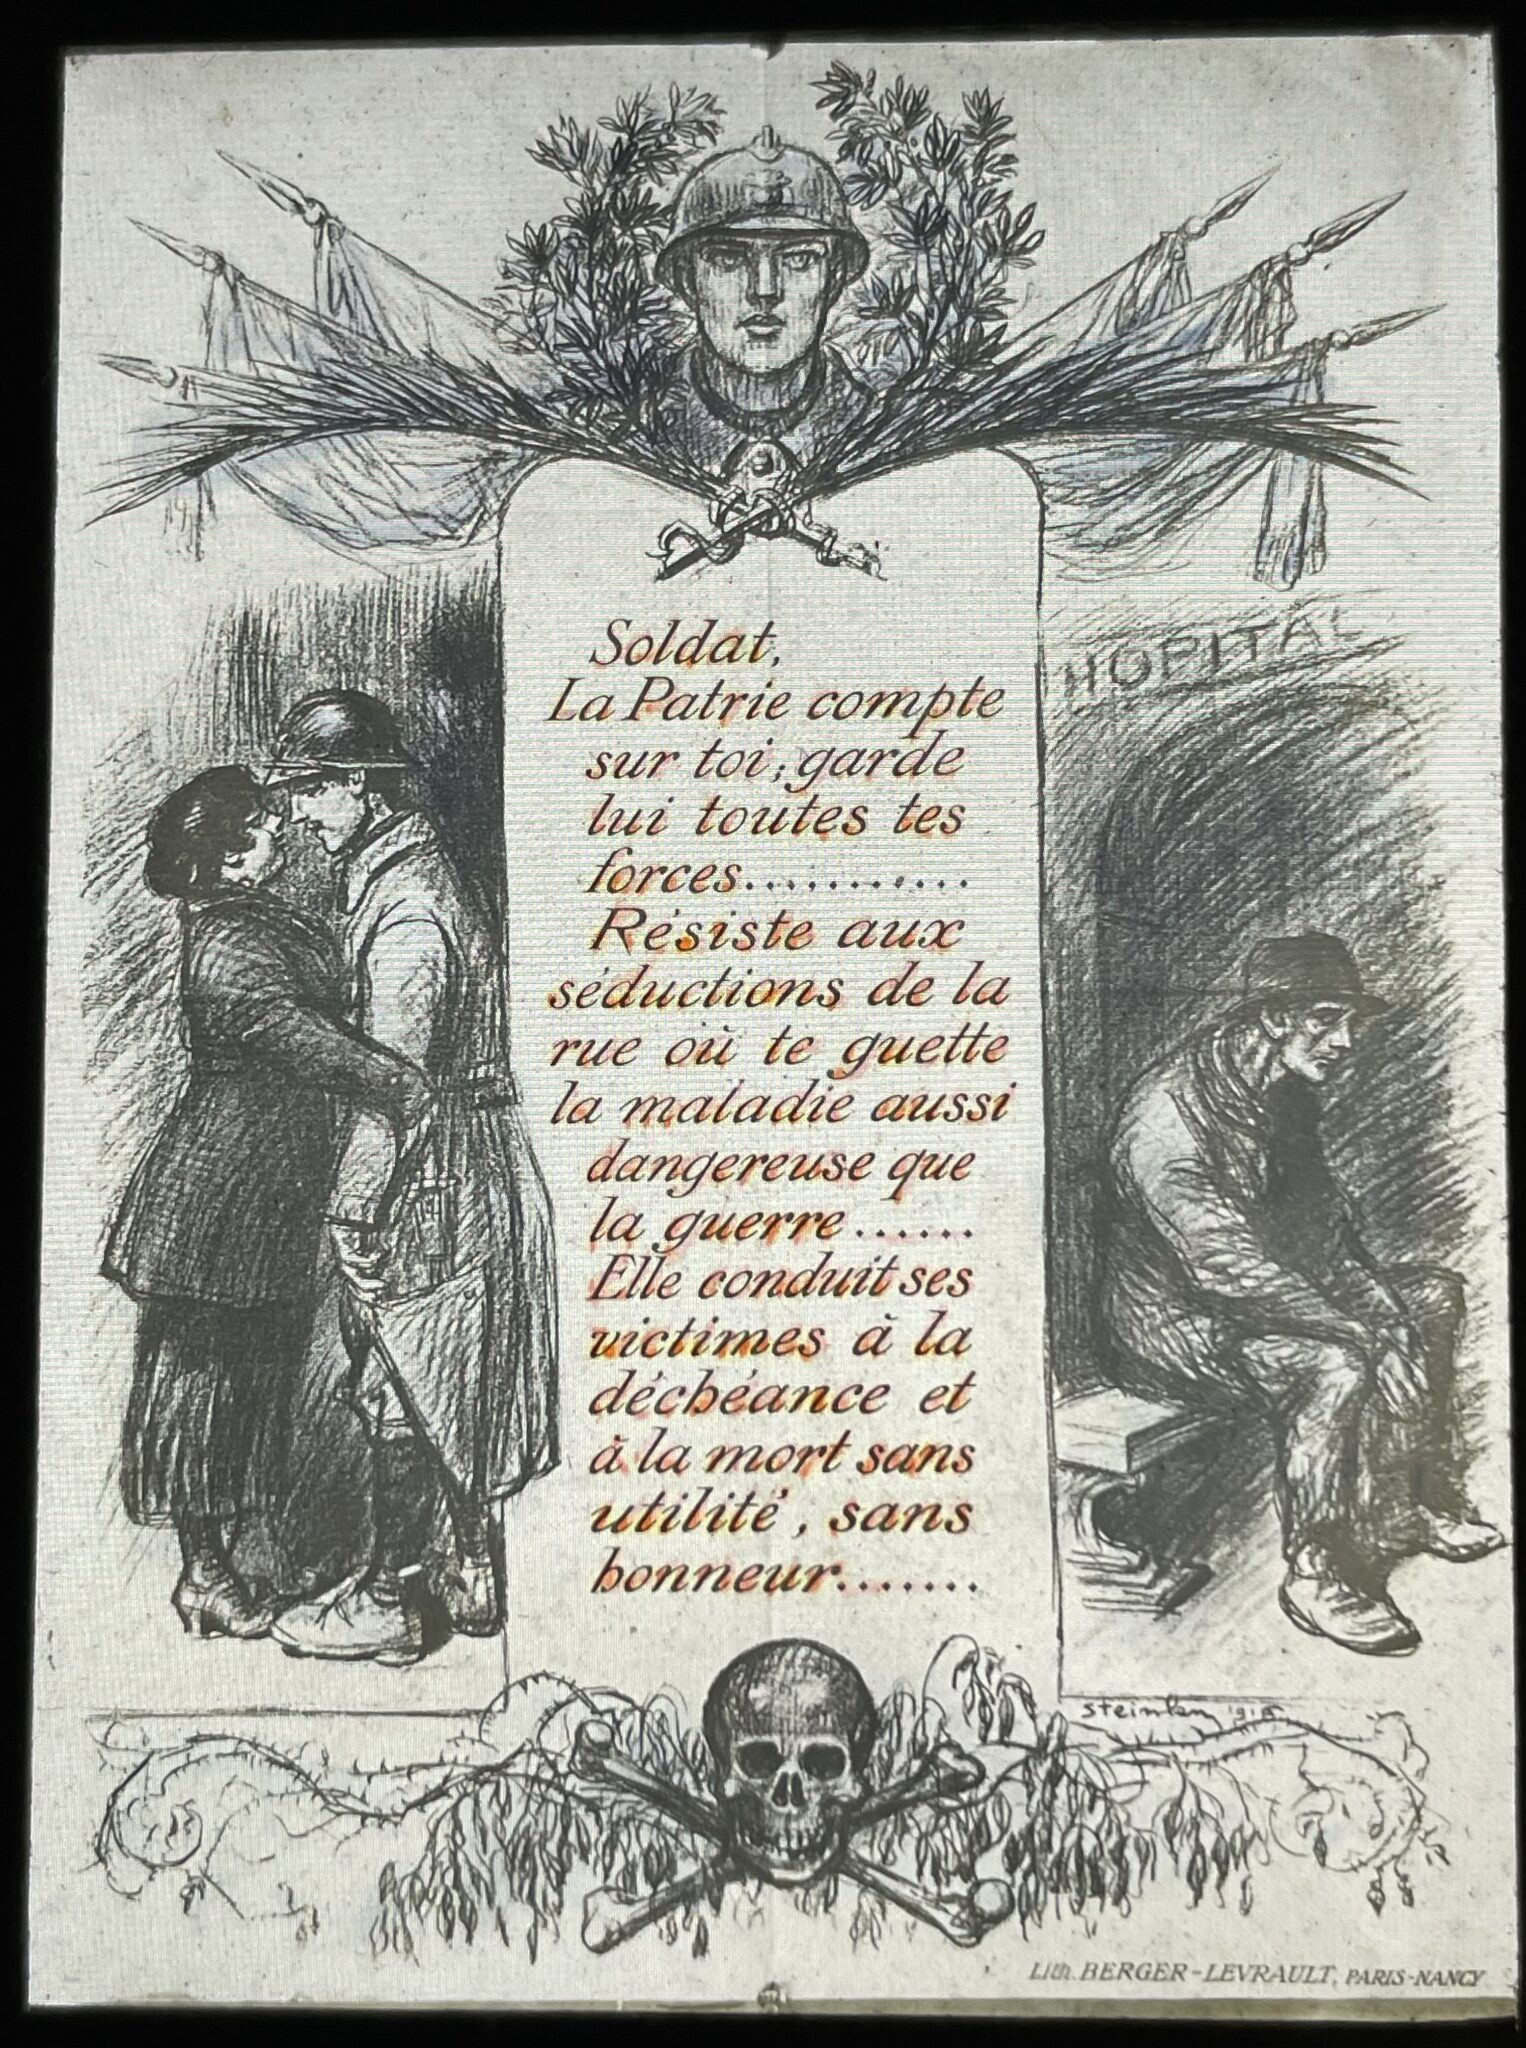 Soldat,
La Patrie compte
sur toi; garde
lui toutes tes
forces...........
Résiste aux
séductions de la
rue où te guette
la maladie aussi
dangereuse que
la guerre......
Elle conduit ses
victimes à la
déchéance et
à la mort sans
utilité, sans
honneur.......
HOPITAL
Steinlen 1916
Lith. BERGER-LEVRAULT, PARIS-NANCY